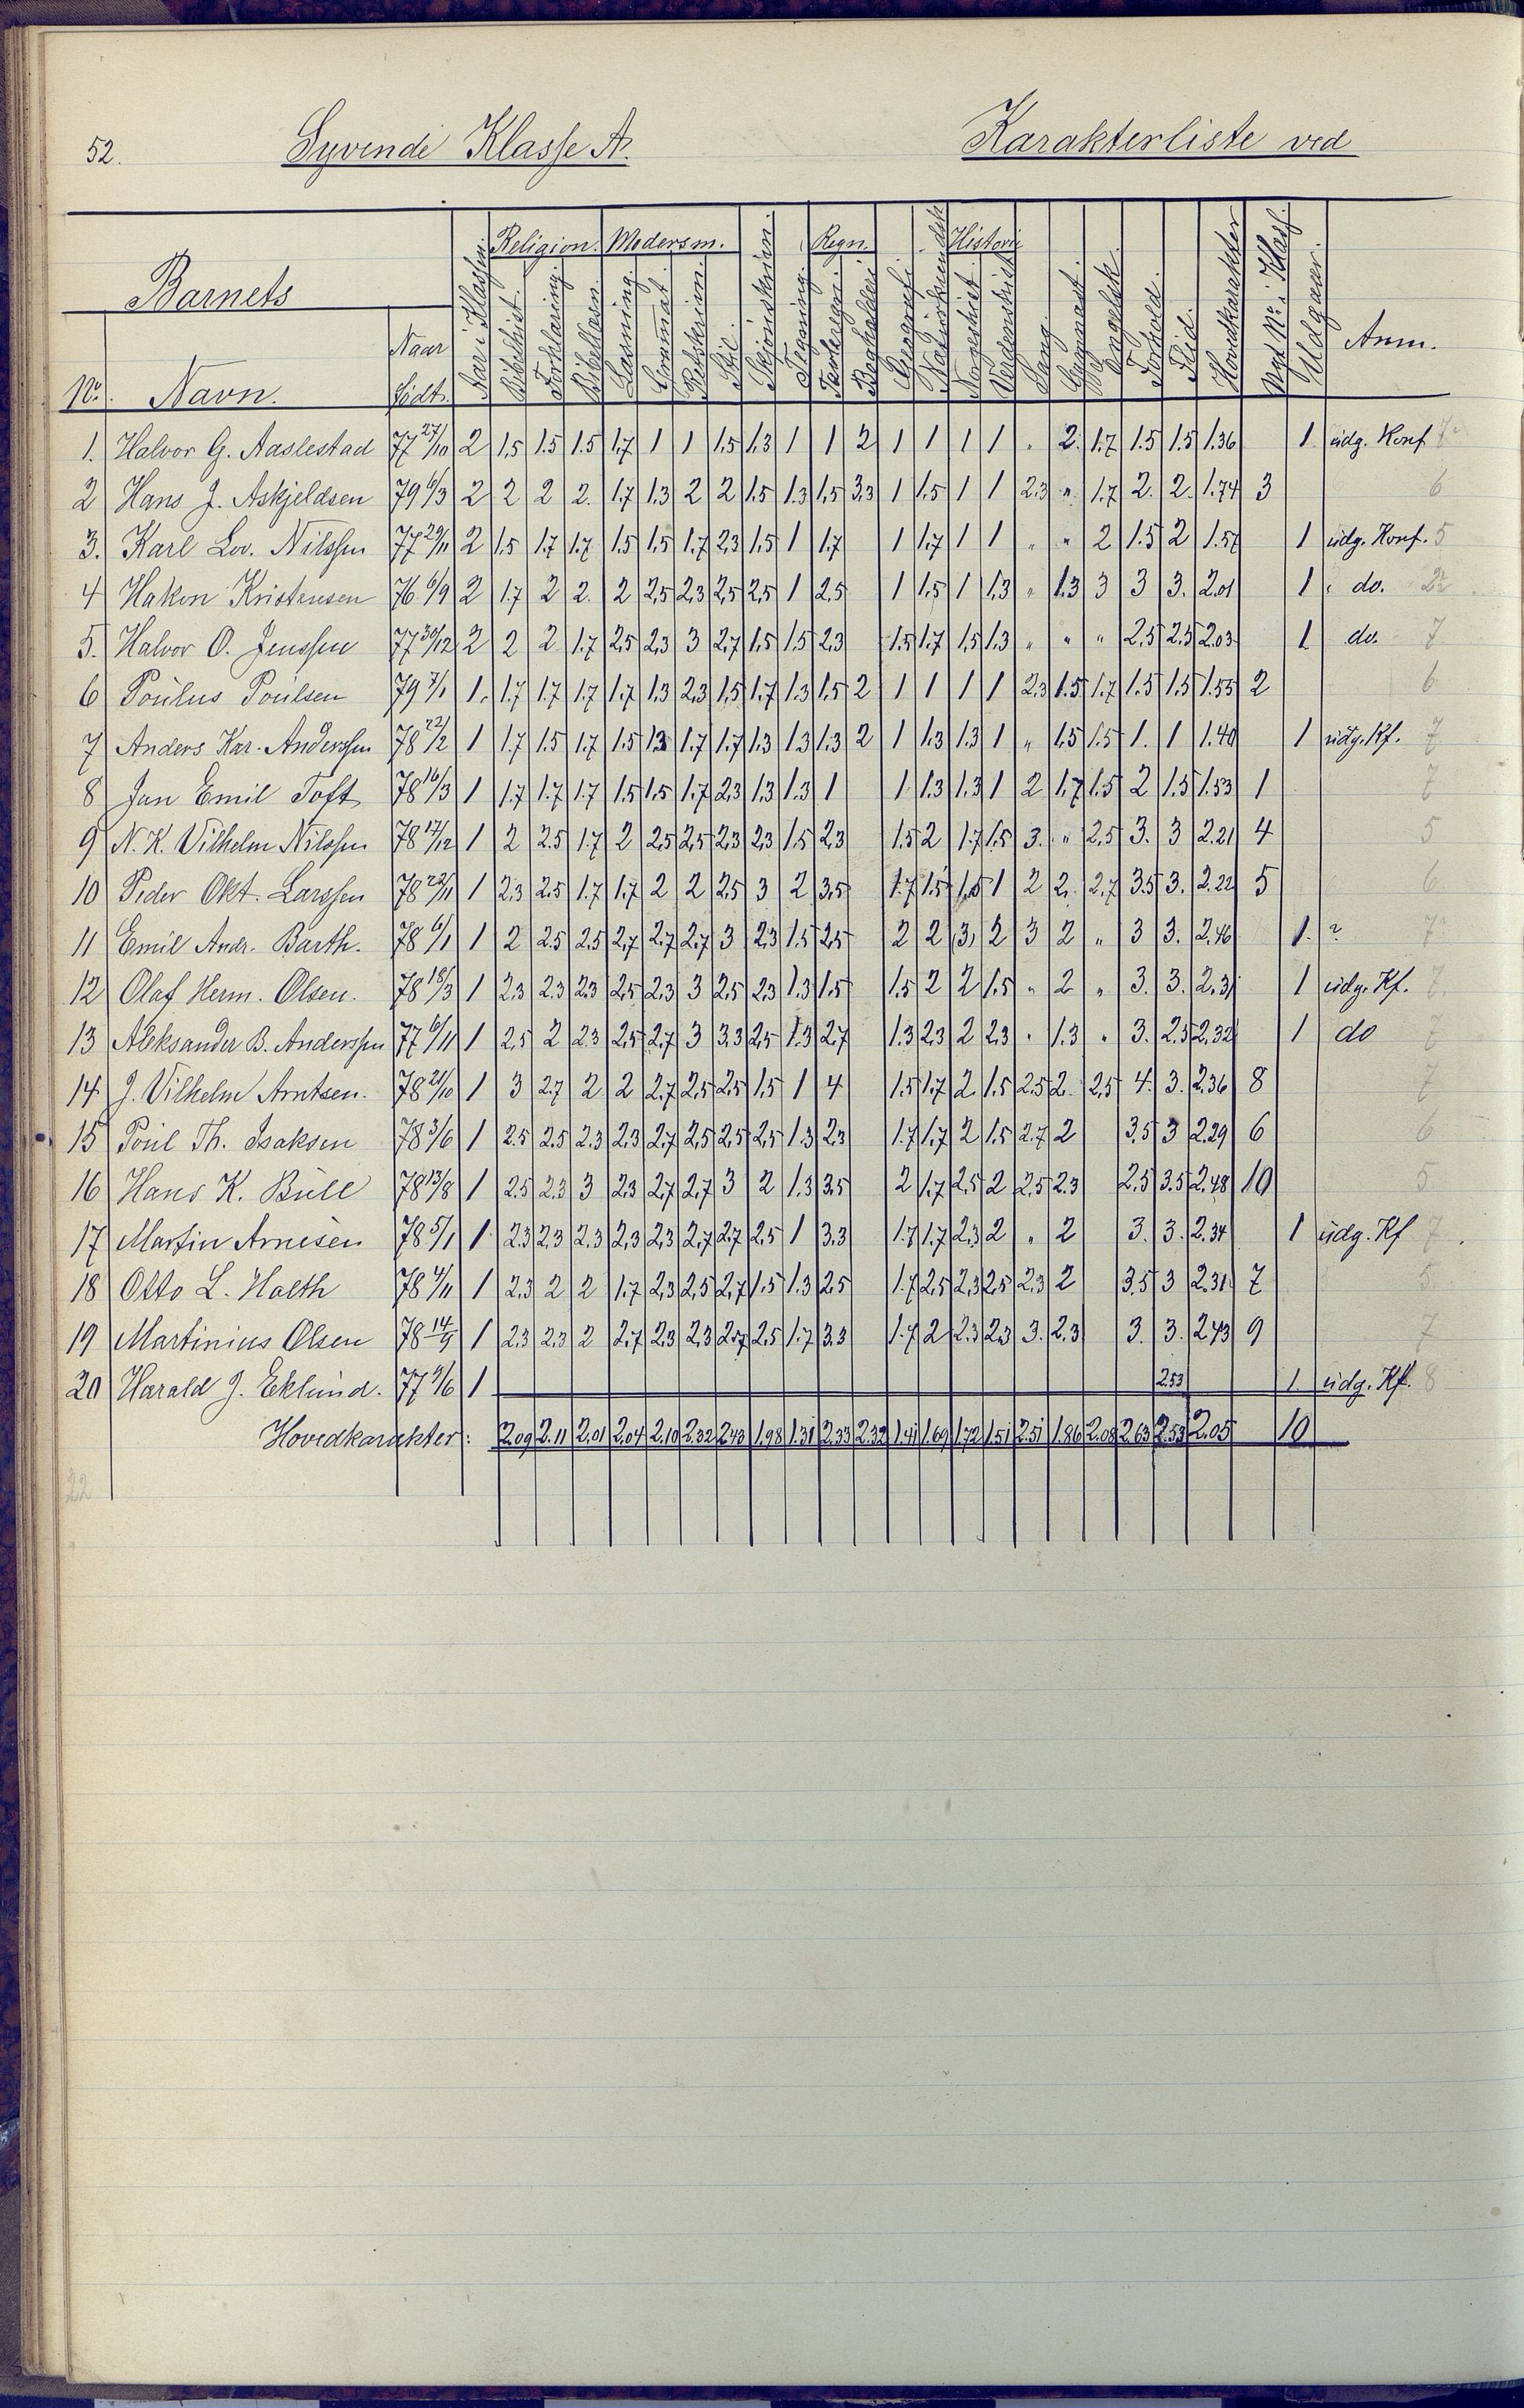 52. Syvende Klasse A. Karakterliste ved
Barnets
Religion. Modersm. Regn. Historie
No. Navn. Naar født. Aar i Klassen. Bibelhist. Forklaring. Bibellæsn. Læsning. Grammat. Retskrivn. Stil. Skjønskrivn. Tegning. Tavleregn. Boghalderi Geografi. Norgeshist. Verdenshist. Sang. Gymnast. Engelsk. Forhold. Flid. Hovedkarakter Nyt No i Klas. Udgaaet. Anm.
1. Halvor G. Aaslestad 77 27/10 2 1.5 1.5 1.5 1.7 1 1 1.5 1.3 1 1 2 1 1 1 1 " 2. 1.7 1.5 1.5 1.36 1 udg. Konf 7
2 Hans J. Askjeldsen 79 6/3 2 2 2 2. 1.7 1.3 2 2 1.5 1.3 1.5 3.3 1 1.5 1 1 2.3 " 1.7 2. 2. 1.74 3 6
3. Karl Lov. Nilssen 77 29/11 2 1.5 1.7 1.7 1.5 1.5 1.7 2.3 1.5 1 1.7 1 1.7 1 1 " " 2 1.5 2 1.57 1 udg. Konf. 5
4 Hakon Kristensen 76 6/9 2 1.7 2 2. 2 2.5 2.3 2.5 2.5 1 2.5 1 1.5 1 1.3 " 1.3 3 3 3. 2.01 1 " do.
5. Halvor O. Jenssen 77 30/12 2 2 2 1.7 2.5 2.3 3 2.7 1.5 1.5 2.3 1.5 1.7 1.5 1.3 " " " 2.5 2.5 2.03 1 do. 7
6 Poulus Poulsen 79 7/1 1. 1.7 1.7 1.7 1.7 1.3 2.3 1.5 1.7 1.3 1.5 2 1 1 1 1 2.3 1.5 1.7 1.5 1.5 1.55 2 6
7 Anders Kar. Anderssen 78 22/2 1 1.7 1.5 1.7 1.5 1.3 1.7 1.7 1.3 1.3 1.3 2 1 1.3 1.3 1 " 1.5 1.5 1. 1 1.40 1 udg. Kf. 7
8 Jan Emil Toft 78 16/3 1 1.7 1.7 1.7 1.5 1.5 1.7 2.3 1.3 1.3 1 1 1.3 1.3 1 2 1.7 1.5 2 1.5 1.53 1 7
9 N. K. Vilhelm Nilssen 78 17/12 1 2 2.5 1.7 2 2.5 2.5 2.3 2.3 1.5 2.3 1.5 2 1.7 1.5 3. " 2.5 3. 3 2.21 4 5
10 Peder Okt. Larssen 78 22/11 1 2.3 2.5 1.7 1.7 2 2 2.5 3 2 3.5 1.7 1.5 1.5 1 2 2. 2.7 3.5 3. 2.22 5 6
11 Emil Andr. Barth. 78 6/1 1 2 2.5 2.5 2.7 2.7 2.7 3 2.3 1.5 2.5 2 2 3 2 3 2 " 3 3. 2.46 1. ? 7
12 Olaf Herm. Olsen. 78 18/3 1 2.3 2.3 2.3 2.5 2.3 3 2.5 2.3 1.3 1.5 1.5 2 2 1.5 " 2 " 3. 3. 2.31 1 udg. Kf. 7
13 Aleksander B. Anderssen 77 6/11 1 2.5 2 2.3 2.5 2.7 3 3.3 2.5 1.3 2.7 1.3 2.3 2 2.3 " 1.3 " 3. 2.5 2.32 1 do 7
14 J. Vilhelm Arntsen. 78 21/10 1 3 2.7 2 2 2.7 2.5 2.5 1.5 1 4 1.5 1.7 2 1.5 2.5 2. 2.5 4. 3. 2.36 8 7
15 Poul Th. Isaksen 78 3/6 1 2.5 2.5 2.3 2.3 2.7 2.5 2.5 2.5 1.3 2.3 1.7 1.7 2 1.5 2.7 2 3.5 3 2.29 6 6
16 Hans K. Bull 78 13/8 1 2.5 2.3 3 2.3 2.7 2.7 3 2 1.3 3.5 2 1.7 2.5 2 2.5 2.3 2.5 3.5 2.48 10 5
17 Martin Arnesen 78 5/1 1 2.3 2.3 2.3 2.3 2.3 2.7 2.7 2.5 1 3.3 1.7 1.7 2.3 2 " 2 3. 3. 2.34 1 udg. Kf 7
18 Otto L. Holth 78 4/11 1 2.3 2 2 1.7 2.3 2.5 2.7 1.5 1.3 2.5 1.7 2.5 2.3 2.5 2.3 2 3.5 3 2.31 7 5
19 Martinius Olsen 78 14/9 1 2.3 2.3 2 2.7 2.3 2.3 2.7 2.5 1.7 3.3 1.7 2 2.3 2.3 3. 2.3 3. 3. 2.43 9 7
20 Harald J. Eklund. 77 9/6 1 2.53 1. udg. Kf. 8
Hovedkarakter: 2.09 2.11 2.01 2.04 2.10 2.32 2.43 1.98 1.31 2.33 2.32 1.41 1.69 1.72 1.51 2.51 1.86 2.08 2.63 2.53 2.05 10
22